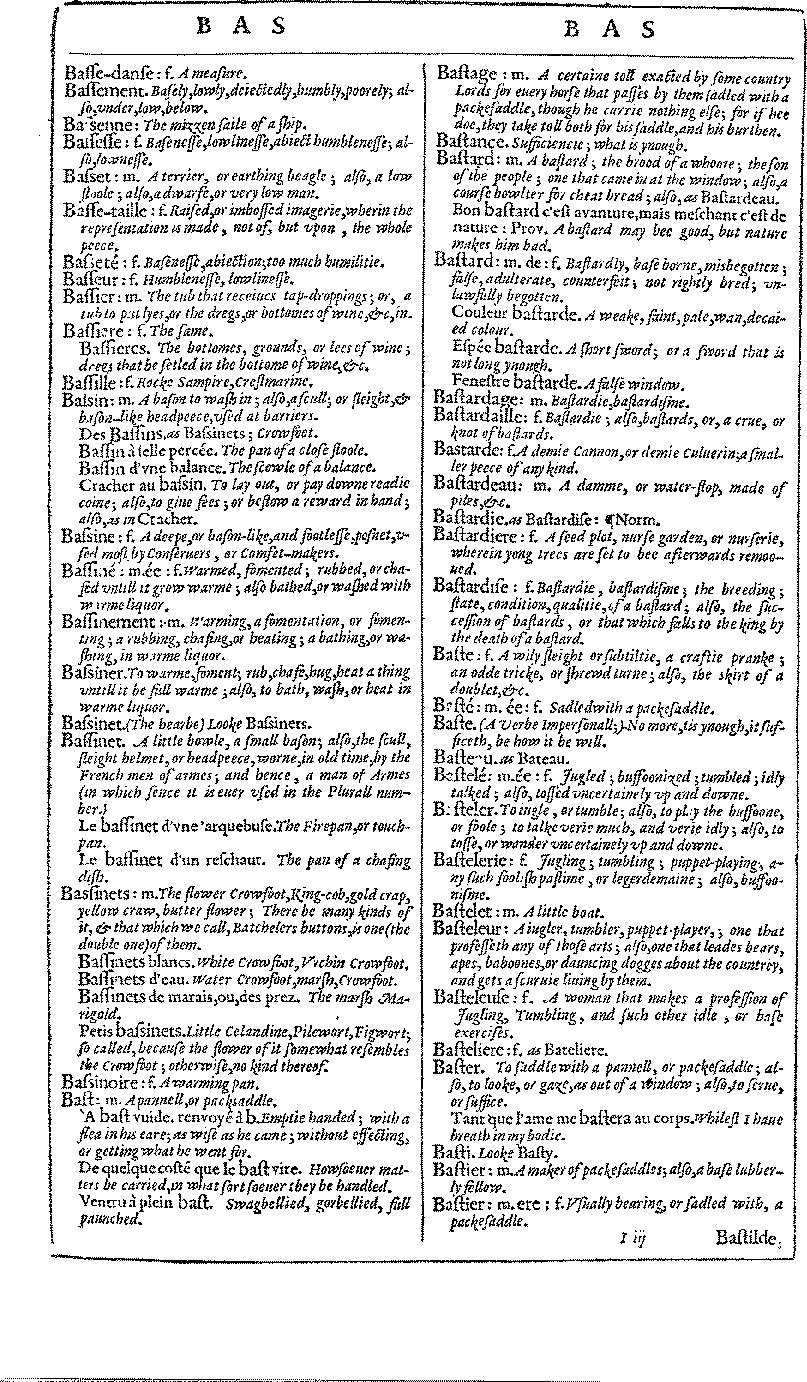 B A S
Basse-danse: f. A measure.
Bassement. Basely, lowly, deiectedly, humbly, poorely; al-
so, vnder, low, below.
Basenne: The mizzen saile of a ship.
Bassesse: f. Basenesse, lowlinesse, abiect humblenesse; al-
so, lownesse.
Basset: m. A terrier, or earthing beagle; also, a low
stoole; also, a dwarfe, or very low man.
Basse-taille: f. Raised, or imbossed imagerie, wherin the
representation is made, not of, but vpon, the whole
peece.
Basseté: f. Basenesse, abiection; too much humilitie.
Basseur: f. Humblenesse, lowlinesse.
Bassier: m. The tub that receiues tap-droppings; or, a
tub to put lyes, or the dregs, or bottomes of wine, &c, in.
Bassiere: f. The same.
Bassieres. The bottomes, grounds, or lees of wine;
dregs that be setled in the bottome of wine, &c.
Bassille: f. Rocke Sampire, Crestmarine.
Bassin: m. A bason to wash in; also, a scull; or sleight, &
bason-like headpeece, vsed at barriers.
Des Bassins, as Bassinets; Crowfoot.
Bassin à selle percée. The pan of a close stoole.
Bassin d'vne balance. The scowle of a balance.
Cracher au bassin. To lay out, or pay downe readie
coine; also, to giue fees; or bestow a reward in hand;
also, as in Cracher.
Bassine: f. A deepe, or bason-like, and footlesse, posnet, v-
sed most by Conseruers, or Comfet-makers.
Bassiné: m. ée: f. Warmed, fomented; rubbed, or cha-
fed vntill it grow warme; also bathed, or washed with
warme liquor.
Bassinement: m. Warming, a fomentation, or fomen-
ting; a rubbing, chafing, or heating; a bathing, or wa-
shing, in warme liquor.
Bassiner. To warme, foment; rub, chafe, hug, heat a thing
vntill it be full warme; also, to bath, wash, or heat in
warme liquor.
Bassinet. (The hearbe) Looke Bassinets.
Bassinet. A little bowle, a small bason; also, the scull,
sleight helmet, or headpeece, worne, in old time, by the
French men of armes; and hence, a man of Armes
(in which sence it is euer vsed in the Plurall num-
ber.)
Le bassinet d'vne arquebuse. The Firepan, or touch-
pan.
Le bassinet d'un reschaut. The pan of a chafing
dish.
Bassinets: m. The flower Crowfoot, King-cob, gold crap,
yellow craw, butter flower; There be many kinds of
it, & that which we call, Batchelers buttons, is one (the
double one) of them.
Bassinets blancs. White Crowfoot, Vrchin Crowfoot.
Bassinets d'eau. Water Crowfoot, marsh, Crowfoot.
Bassinets de marais, ou, des prez. The marsh Ma-
rigold.
Petis bassinets. Little Celandine, Pilewort, Figwort;
so called, because the flower of it somewhat resembles
the Crowfoot; otherwise, no kind thereof.
Bassinoire: f. A warming pan.
Bast: m. A pannell, or packsaddle.
A bast vuide. renvoyé à b. Emptie handed; with a
flea in his eare; as wise as he came; without effecting,
or getting what he went for.
De quelque costé que le bast vire. Howsoeuer mat-
ters be carried, in what sort soeuer they be handled.
Ventru à plein bast. Swagbellied, gorbellied, full
paunched.
B A S
Bastage: m. A certaine toll exacted by some country
Lords for euery horse that passes by them sadled with a
packesaddle, though he carrie nothing else; for if hee
doe, they take toll both for his saddle, and his burthen.
Bastance. Sufficiencie; what is ynough.
Bastard: m. A bastard; the brood of a whoore; the son
of the people; one that came in at the window; also, a
course bowlter for cheat bread; also, as Bastardeau.
Bon bastard c'est avanture, mais meschant c'est de
nature: Prov. A bastard may bee good, but nature
makes him bad.
Bastard: m. de: f. Bastardly, base borne, misbegotten;
false, adulterate, counterfeit; not rightly bred; vn-
lawfully begotten.
Couleur bastarde. A weake, faint, pale, wan, decai-
ed colour.
Espée bastarde. A short sword; or a sword that is
not long ynough.
Fenestre bastarde. A false window.
Bastardage: m. Bastardie, bastardisme.
Bastardaille: f. Bastardie; also, bastards, or, a crue, or
knot of bastards.
Bastarde: f. A demie Cannon, or demie Culuerin; a smal-
ler peece of any kind.
Bastardeau: m. A damme, or water-stop, made of
piles, &c.
Bastardie. as Bastardise: ¶Norm.
Bastardiere: f. A seed plot, nurse garden, or nurserie,
wherein yong trees are set to bee afterwards remoo-
ued.
Bastardise: f. Bastardie, bastardisme; the breeding;
state, condition, qualitie, of a bastard; also, the suc-
cession of bastards, or that which falls to the king by
the death of a bastard.
Baste: f. A wily sleight or subtiltie, a craftie pranke;
an odde tricke, or shrewd turne; also, the skirt of a
doublet, &c.
Basté: m. ée: f. Sadled with a packesaddle.
Baste. (A Verbe Impersonall;) No more, tis ynough, it suf-
ficeth, be how it be will.
Basteau. as Bateau.
Bastelé: m. ée: f. Jugled; buffoonized; tumbled; idly
talked; also, tossed vncertainely vp and downe.
Basteler. To iugle, or tumble; also, to play the buffoone,
or foole; to talke verie much, and verie idly; also, to
tosse, or wander vncertainely vp and downe.
Bastelerie: f. Jugling; tumbling; puppet-playing, a-
ny such foolish pastime, or legerdemaine; also, buffoo-
nisme.
Bastelet: m. A little boat.
Basteleur: A iugler, tumbler, puppet-player,; one that
professeth any of those arts; also, one that leades bears,
apes, baboones, or dauncing dogges about the countrey,
and gets a scuruie liuing by them.
Basteleuse: f. A woman that makes a profession of
Jugling, Tumbling, and such other idle, or base
exercises.
Basteliere: f. as Bateliere.
Baster. To saddle with a pannell, or packesaddle; al-
so, to looke, or gaze, as out of a window; also, to serue,
or suffice.
Tant que l'ame me bastera au corps. Whilest I haue
breath in my bodie.
Basti. Looke Basty.
Bastier: m. A maker of packesaddles; also, a base lubber-
ly fellow.
Bastier: m. ere: f. Vsually bearing, or sadled with, a
packesaddle.
I iij Bastilde,